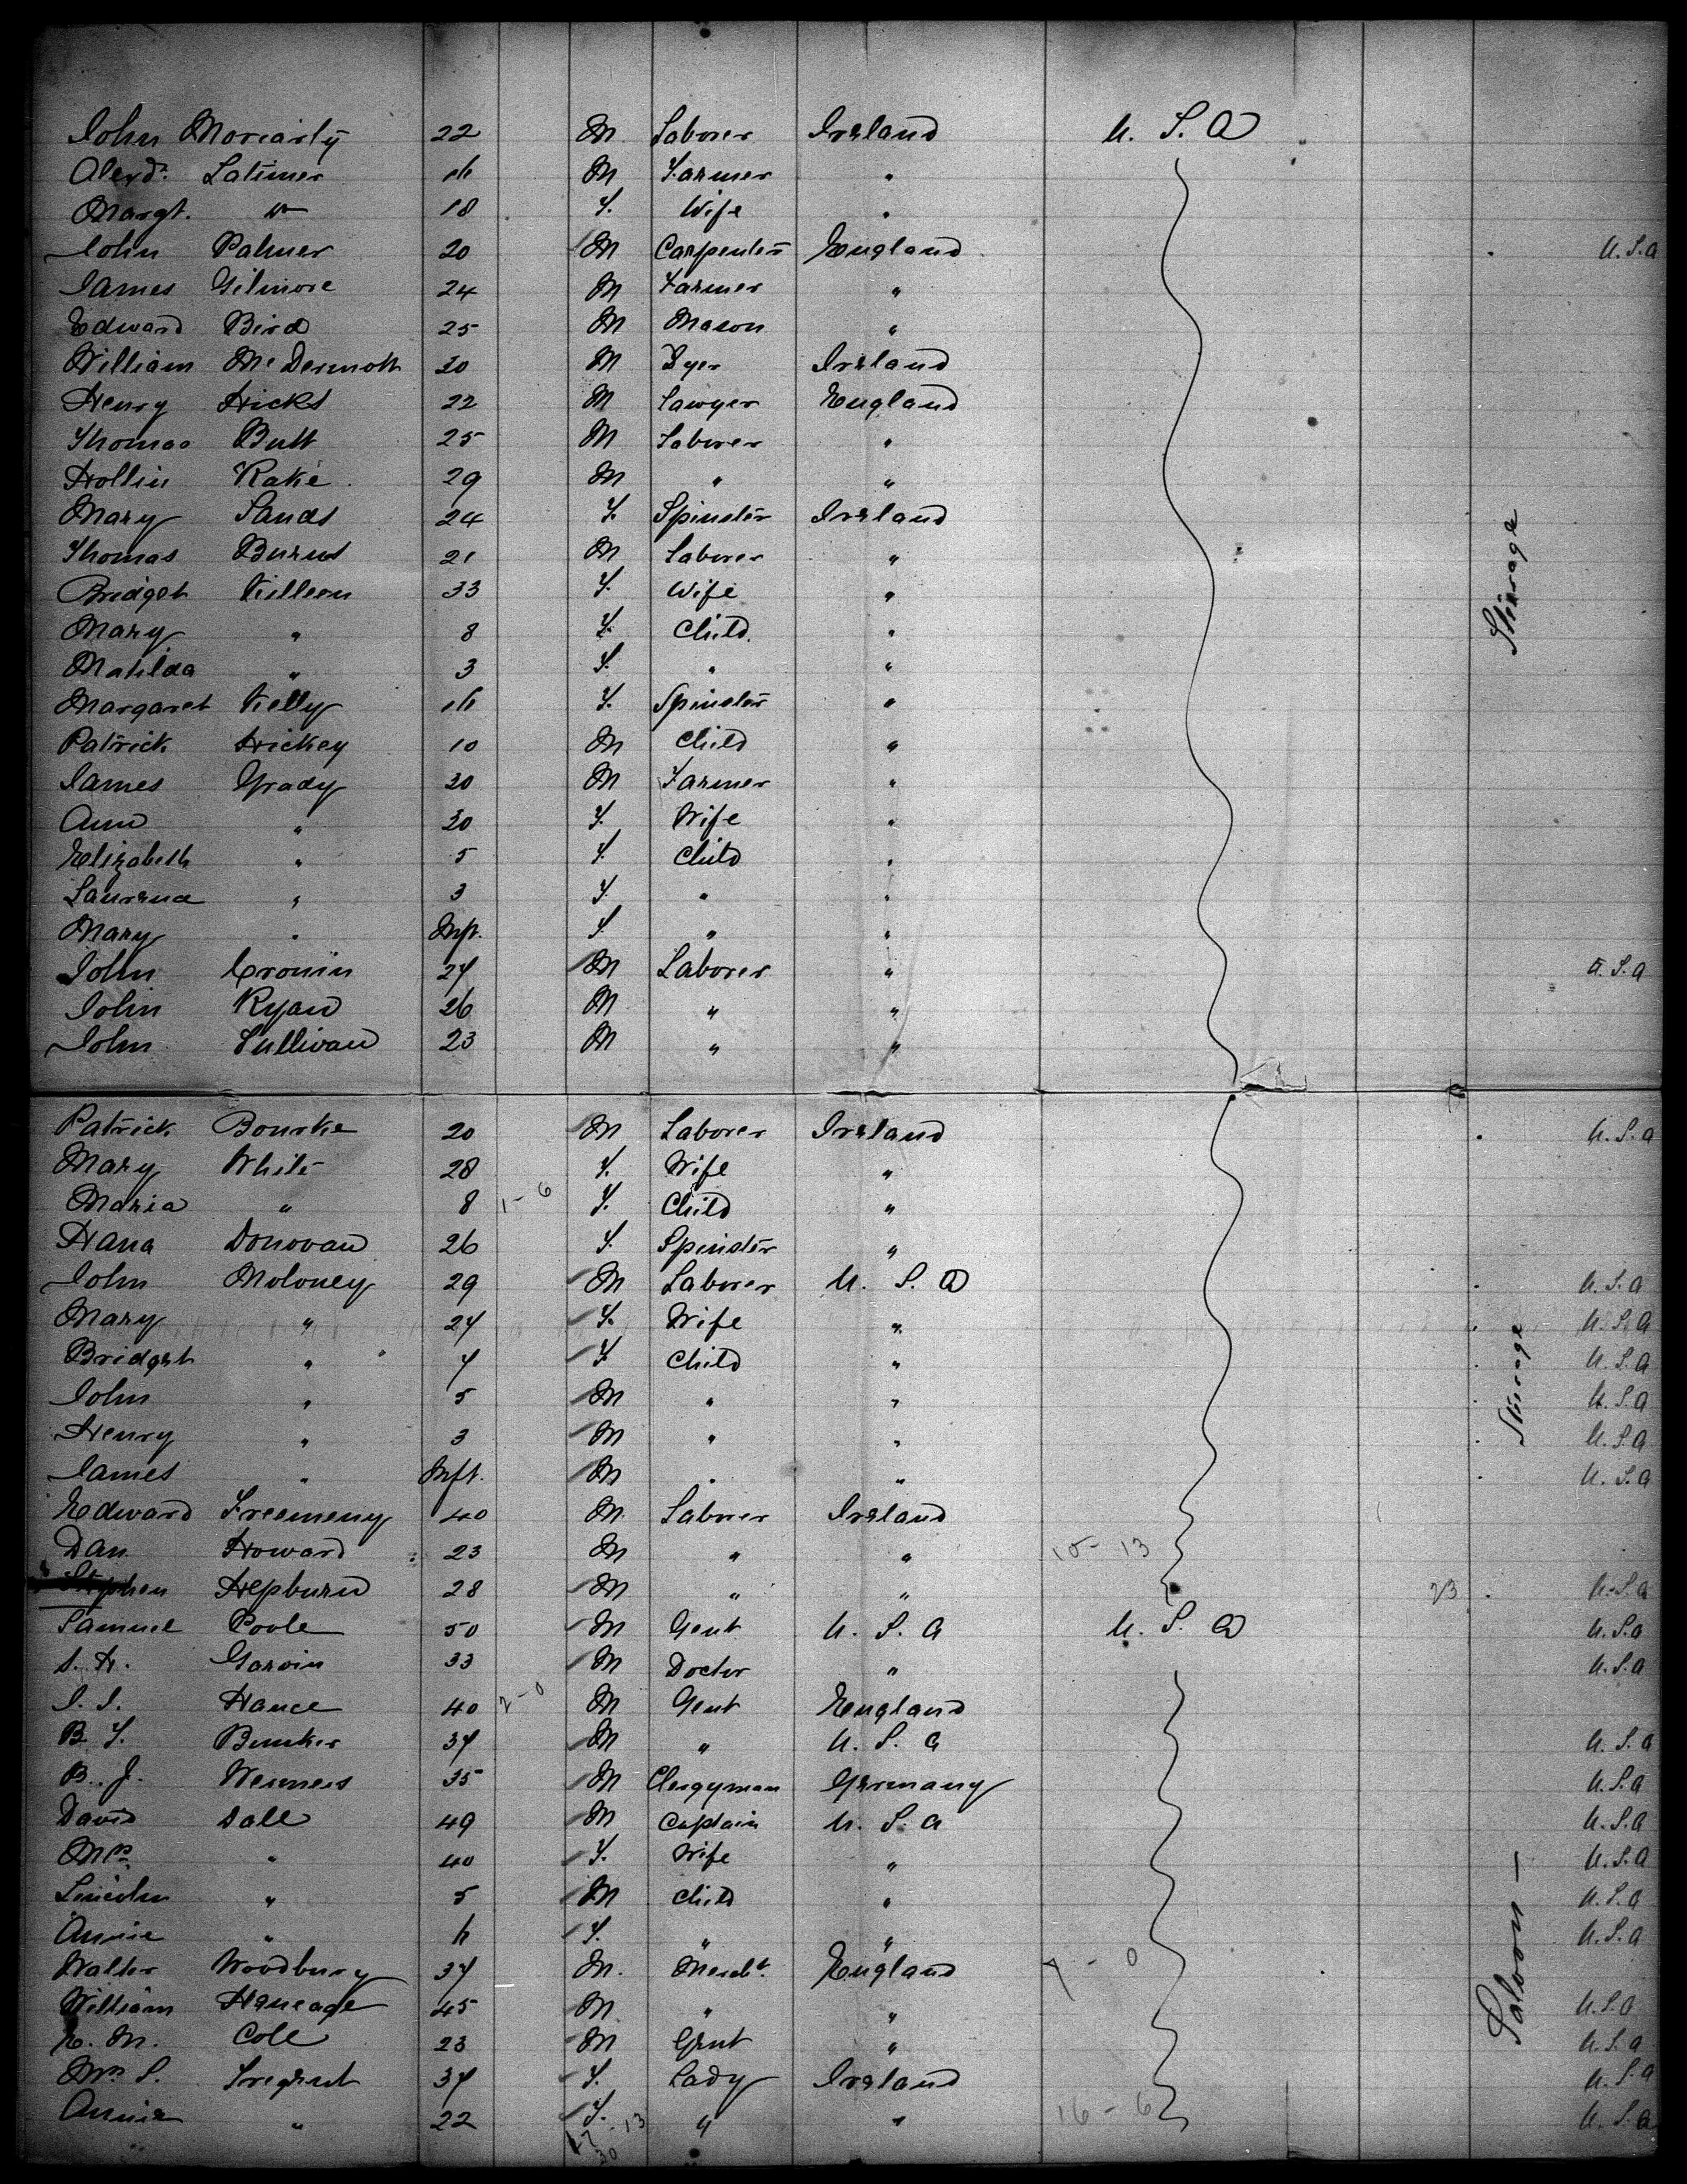 John Moriarty 22 M Laborer Ireland U. S. A
Alexdr. Latimer 16 M Farmer "
Margt. Do 18 F. Wife "
John Palmer 20 M Carpenter England U.S.A
James Gilmore 24 M Farmer "
Edward Bird 25 M Mason "
William McDermott 20 M Dyer Ireland
Henry Hicks 22 M Sawyer England
Thomas Butt 25 M Laborer "
Hollin Rake 29 M " "
Mary Sands 24 F. Spinster Ireland
Thomas Burns 21 M Laborer "
Bridget Killeen 33 F. Wife "
Mary " 8 F. Child "
Matilda " 3 F. " "
Margaret Kelly 16 F. Spinster "
Patrick Hickey 10 M Child "
James Grady 30 M Farmer "
Ann " 30 F. Wife "
Elizabeth " 5 F. Child "
" 3 F. " "
Mary " Inft. F. " "
John Cronin 27 M Laborer " U.S.A
John Ryan 26 M " "
John Sullivan 23 M " "
Steerage
Patrick Bourke 20 M Laborer Ireland U.S.A
Mary White 28 F. Wife "
Maria " 8 1-6 F. Child "
Hana Donovan 26 F. Spinster "
John Moloney 29 M Laborer U. S. A U.S.A
Mary " 27 F. Wife " U.S.A
Bridget " 7 F. Child " U.S.A
John " 5 M " " U.S.A
Henry " 3 M " " U.S.A
James " Inft. M " " U.S.A
Steerage
Edward 40 M. Laborer Ireland
Dan Howard 23 M " " 10-13
Stephen Hepburn 28 M " " 23 U.S.A
Samuel Poole 50 M Gent U. S. A U. S. A U.S.A
Garvin 33 M Doctor " U.S.A
Hance 40 2-0 M Gent England
B. F. Bunker 37 M " U. S. A U.S.A
B. J. 35 M Clergyman Germany U.S.A
David Dall 49 M Captain U. S. A U.S.A
Mrs " 40 F. Wife " U.S.A
Lincoln " 5 M Child " U.S.A
Annie " F. " " U.S.A
Walter Woodbury 37 M. Mercht. England 7-0
William 45 M " " U.S.A
E. M. Cole 23 M Gent " U.S.A
Mrs S. 37 F. Lady Ireland U.S.A
Annie " 22 F. " " 16-6 U.S.A
Saloon -
17-13
30